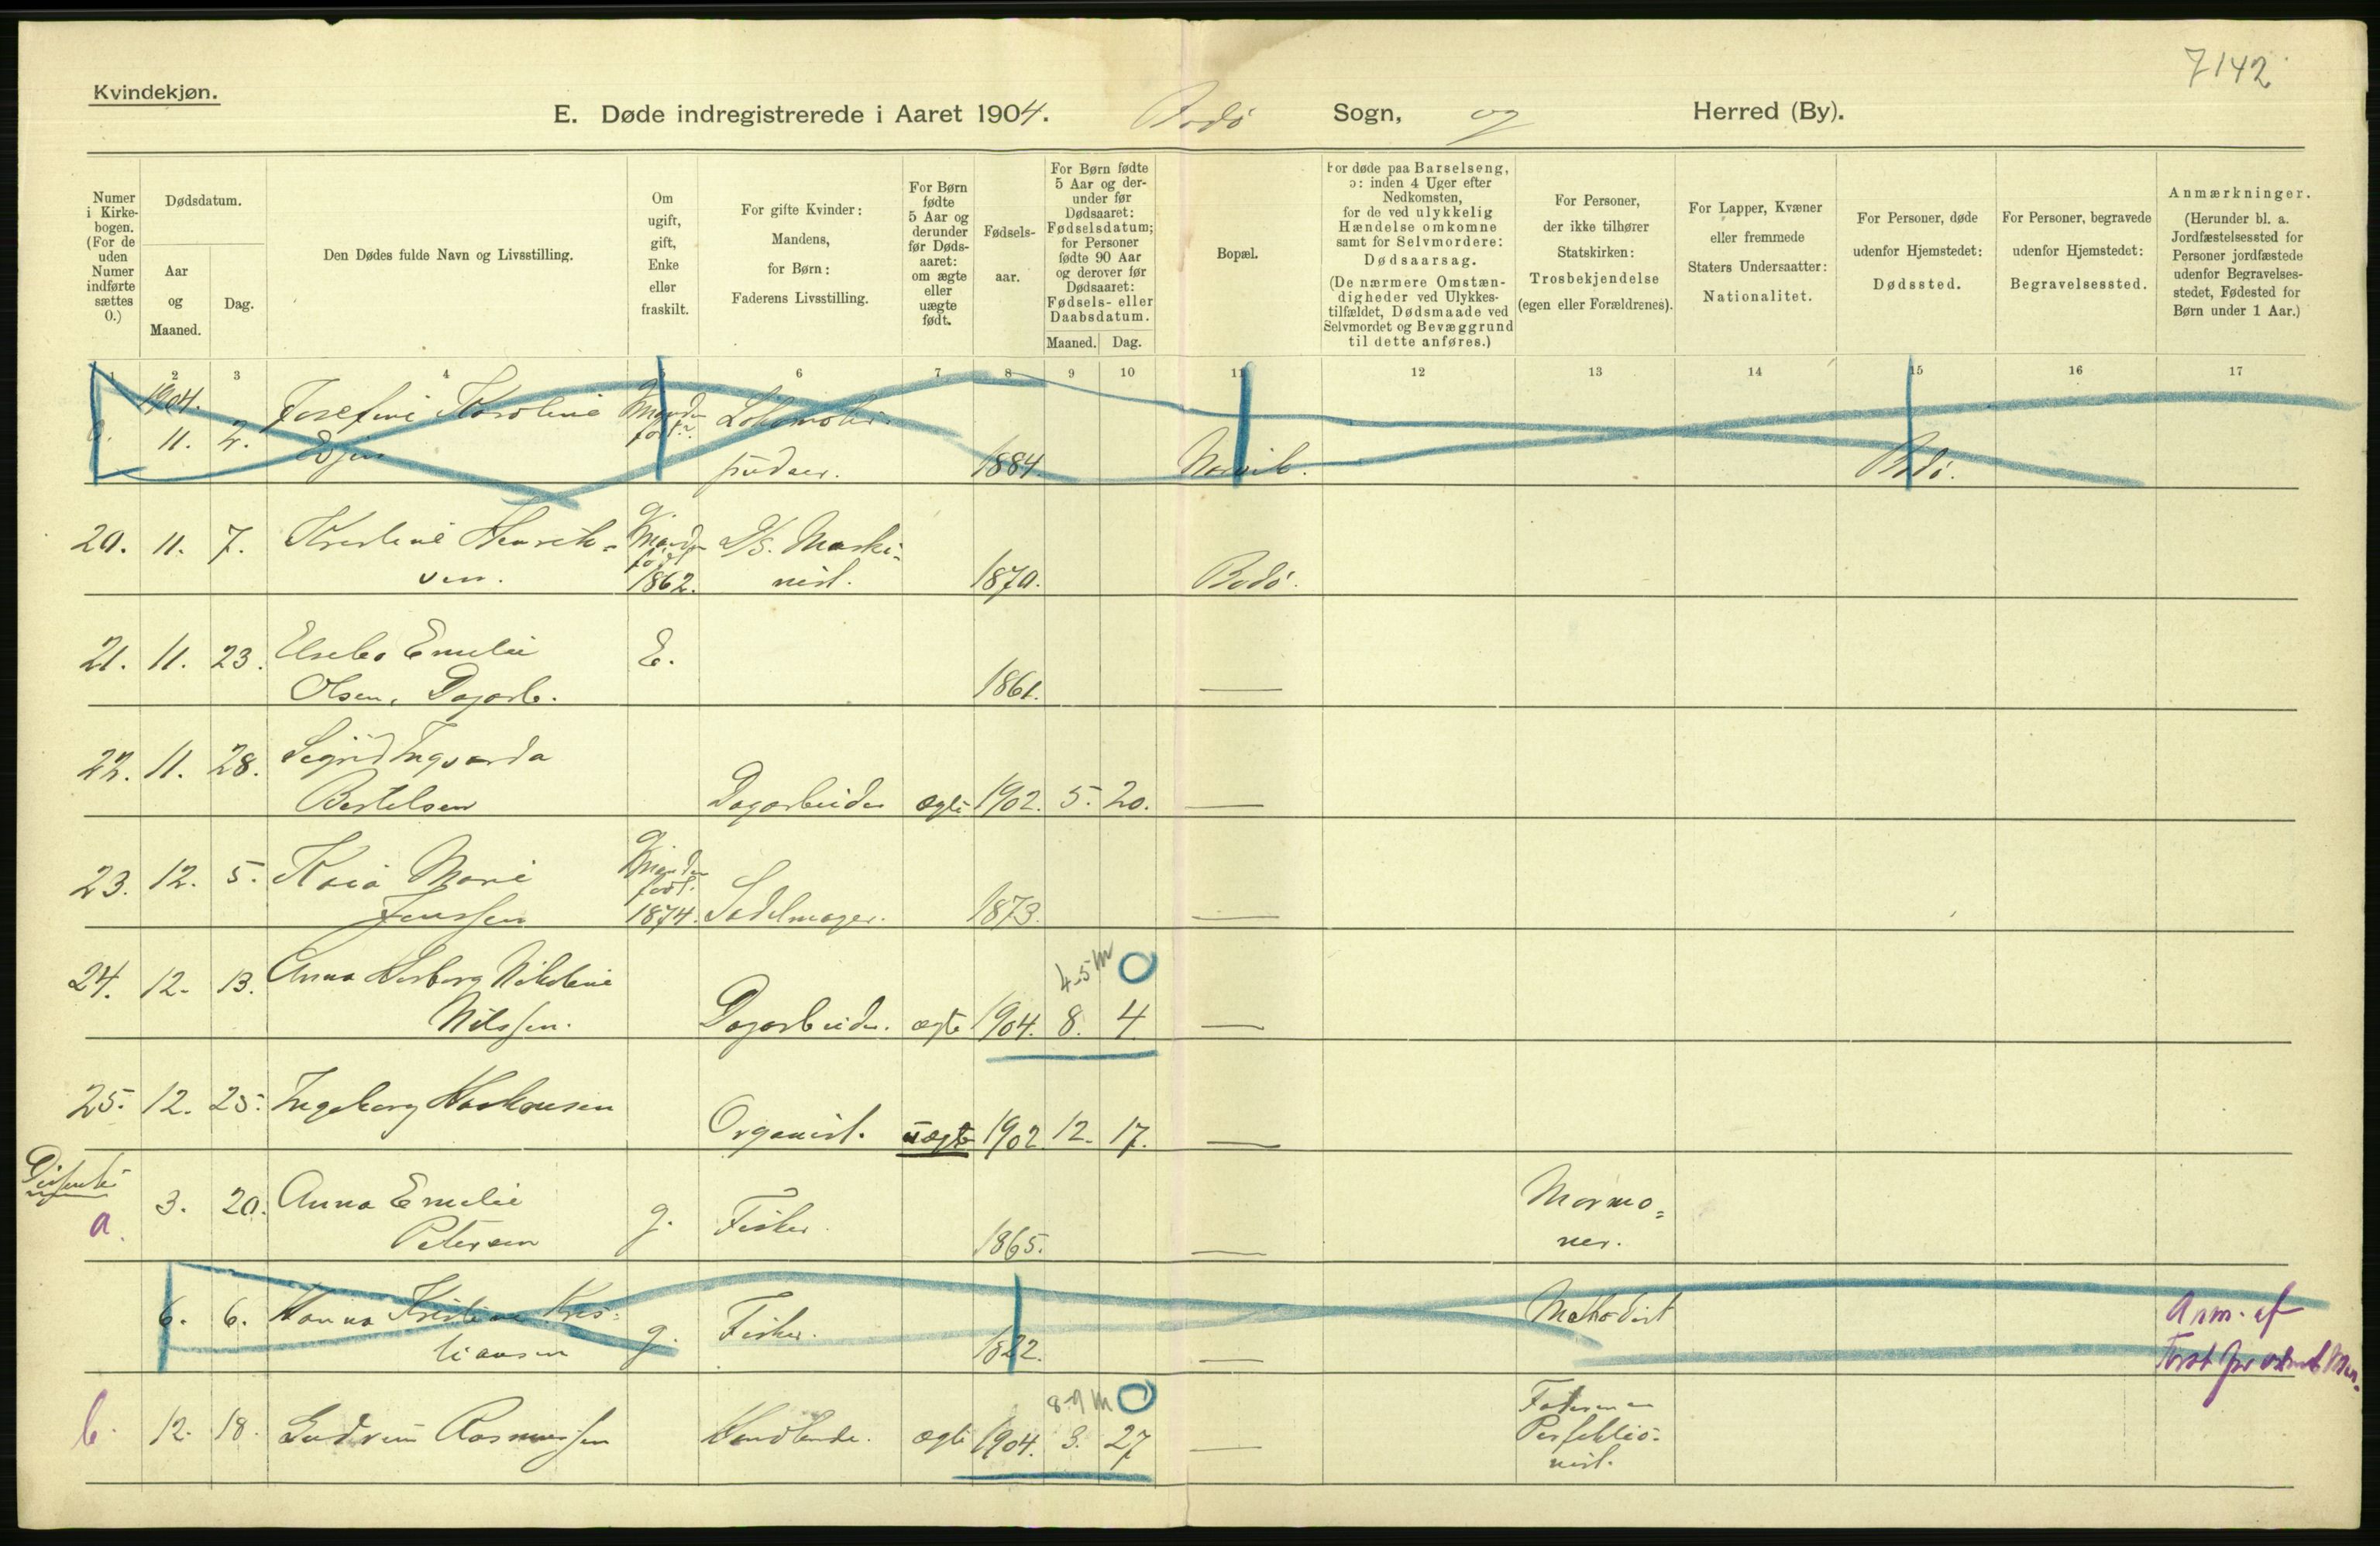 7142
Kvindekjøn.
E. Døde indregistrerede i Aaret 1904. Bodø Sogn, og Herred (By).
Numer i Kirkebogen. (For de uden Numer indførte sættes 0.)
Dødsdatum.
Aar og Maaned.
Dag.
Den Dødes fulde Navn og Livsstilling.
Om ugift, gift, Enke eller fraskilt.
For gifte Kvinder: Mandens, for Børn: Faderens Livsstilling.
For Børn fødte 5 Aar og derunder før Dødsaaret: om ægte eller uægte født.
Fødselsaar.
For Børn fødte 5 Aar og derunder før Dødsaaret: Fødselsdatum; for Personer fødte 90 Aar og derover før Dødsaaret: Fødsels- eller Daabsdatum.
Maaned. Dag.
Bopæl.
For døde paa Barselseng, ɔ: inden 4 Uger efter Nedkomsten, for de ved ulykkelig Hændelse omkomne samt for Selvmordere: Dødsaarsag. (De nærmere Omstændigheder ved Ulykkestilfældet, Dødsmaade ved Selvmordet og Bevæggrund til dette anføres.)
For Personer, der ikke tilhører Statskirken: Trosbekjendelse (egen eller Forældrenes).
For Lapper, Kvæner eller fremmede Staters Undersaatter: Nationalitet.
For Personer, døde udenfor Hjemstedet: Dødssted.
For Personer, begravede udenfor Hjemstedet: Begravelsessted.
Anmærkninger. (Herunder bl. a. Jordfæstelsessted for Personer jordfæstede udenfor Begravelsesstedet, Fødested for Børn under 1 Aar.)
1 2 3 4 5 6 7 8 9 10 11 12 13 14 15 16 17
1904.
0. 11. 2. Josefine Karoline g. Manden født? Lokomotiv-
pudser. 1884. Narvik. Bodø.
20. 11. 7. Kristine Henrik=
sen. g. Manden født 1862. D/S. Maski=
nist. 1870. Bodø.
21. 11. 23. Elsebe Emelie E.
Olsen, Dagarb. 1861. —
22. 11. 28. Sigrid Ingvarda
Bertelsen Dagarbeider ægte 1902. 5. 20. —
23. 12. 5. Kaia Marie g. Manden født.
Jenssen 1874. Sadelmager. 1873. —
24. 12. 13. Anna Nikoline 4-5 m 0
Nilssen. Dagarbeider. ægte 1904. 8. 4. —
25. 12. 25. Ingeborg Haakonsen
Organist. uægte 1902. 12. 17. —
Dissenter
a. 3. 20. Anna Emelie
Petersen g. Fisker. 1865. — Mormo=
ner.
6. 6. Hanna Kristine Kris=
tiansen g. Fisker. 1822. — Methodist Anm. af
8-9 m 0
b. 12. 18. Gudrun Rasmussen Handlende. ægte 1904. 3. 27 — Faderen en
Perfektio=
nist.